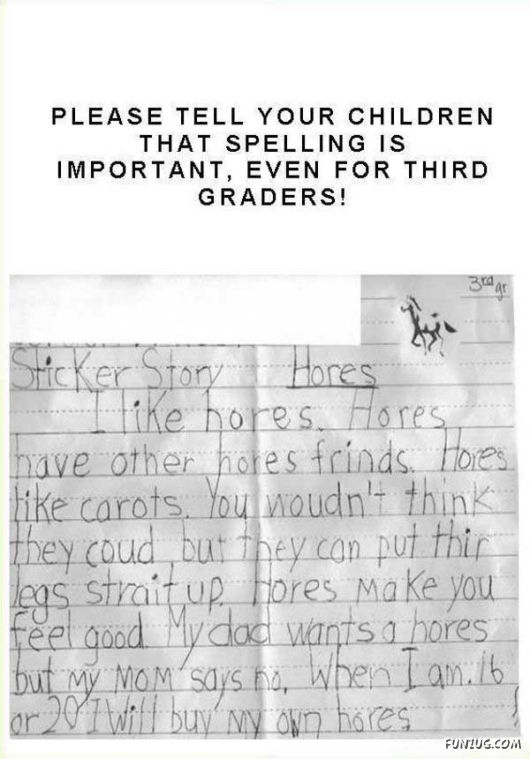 PLEASE TELL YOUR CHILDREN
THAT SPELLING IS
IMPORTANT, EVEN FOR THIRD
GRADERS!
3rd gr
Sticker Story Hores
I like hores. Hores
have other hores frinds. Hores
like carots. You woudn't think
they coud but they can put thir
legs strait up. Hores make you
feel good. My dad wants a hores
but my mom says no. When I am 16
or 20 I will buy my own hores
FUNZUG.COM